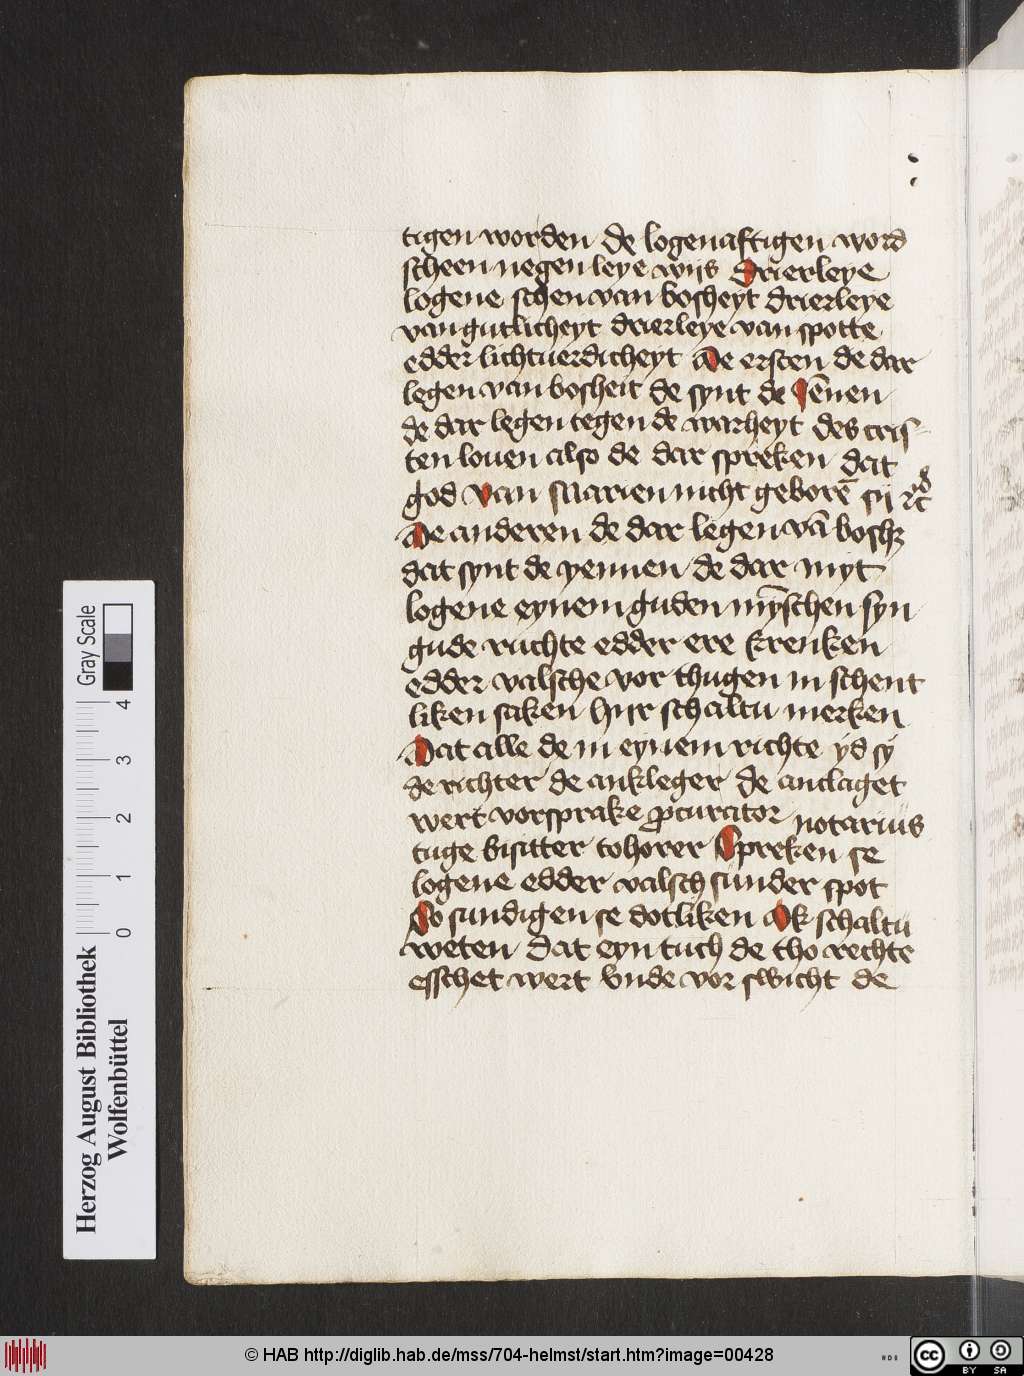 tigen worden de logenaftigen word
scheen negen leye wijs Drierleye
logene schen van bosheyt drierleye
van gutlicheyt drierleye van spotte
edder lichtuerdicheyt De ersten de dar
legen van bosheit de synt de Jēnen
de dar legen tegen de warheyt des cris
ten louen also de dar spreken dat
god van Marien nicht geborē sij
De anderen de dar legen vā bosh
dat synt de yennen de dar myt
logene eynem guden mȳschen syn
gude ruchte edder ere krenken
edder valsche vor thugen in schent
liken saken hijr schaltu merken
Dat alle de in eynem richte ẏd sy
de richter de ankleger de anclaget
wert vorsprake ꝓcurator notarius
tuge bisitter tohorer Spreken se
logene edder valsch sunder spot
So sundigen se dotliken Ok schaltu
weten dat eyn tuch de tho rechte
esschet wert vnde vor swicht de
Herzog August Bibliothek
Wolfenbüttel
Gray Scale
0 1 2 3 4
© HAB http://diglib.hab.de/mss/704-helmst/start.htm?image=00428
cc BY SA